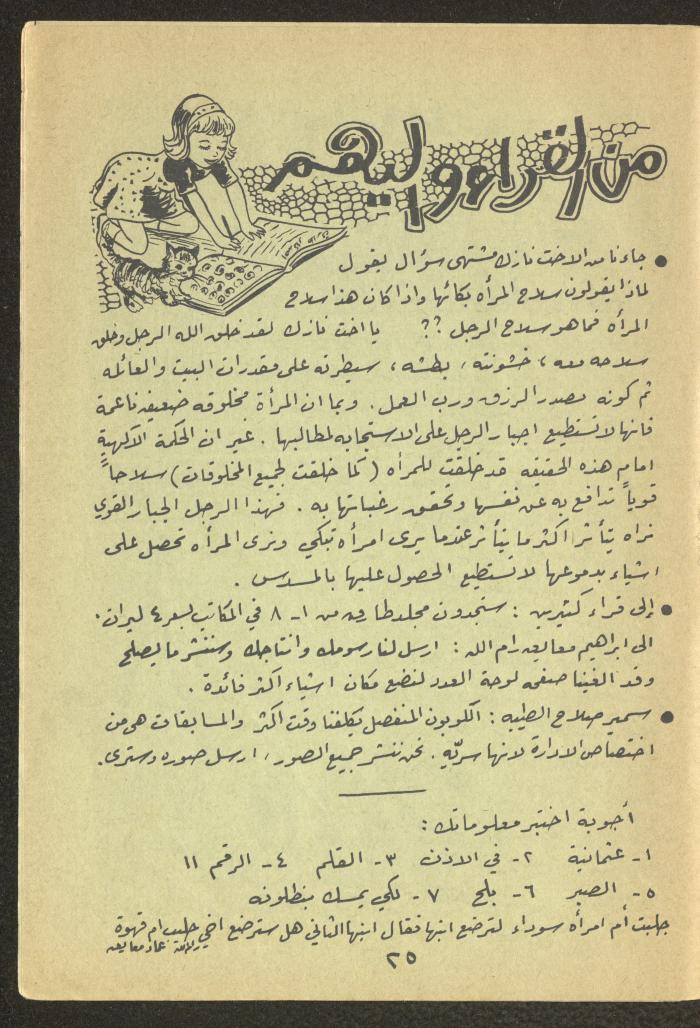 من القراء واليهم
● جاءنا من الاخت نازك مشتهى سؤال يقول
لماذا يقولون سلاح المرأه بكائها واذا كان هذا سلاح
المرأه فما هو سلاح الرجل ؟؟ يا اخت نازك لقد خلق الله الرجل وخلق
سلاحه معه ، خشونته ، بطشه ، سيطرته على مقدرات البيت والعائله
ثم كونه مصدر الرزق ورب العمل . وبما ان المرأة مخلوقه ضعيفه ناعمة
فانها لا تستطيع اجبار الرجل على الاستجابه لمطالبها . غير ان الحكمة الآلهية
امام هذه الحقيقه قد خلقت للمرأه ( كما خلقت لجميع المخلوقات ) سلاحاً
قوياً تدافع به عن نفسها وتحقق رغباتها به . فهذا الرجل الجبار القوي
نراه يتأثر اكثر ما يتأثر عندما يرى امرأه تبكي ونرى المرأه تحصل على
اشياء بدموعها لا تستطيع الحصول عليها بالمسدس .
● إلى قراء كثيرين : ستجدون مجلد طارق من ١ - ٨ في المكاتب بسعر ٤ ليرات .
الى ابراهيم معاليه رام الله : ارسل لنا رسومك وانتاجك وسننشر ما يصلح
وقد الغينا صفحه لوحة العدد لنضع مكان اشياء اكثر فائدة .
● سمير صلاح الطيبه : الكوبون المنفصل يكلفنا وقت اكثر والمسابقات هي من
اختصاص الادارة لانها سريّه . نحن ننشر جميع الصور ، ارسل صوره وسترى .
أجوبة اختبر معلوماتك :
١- عثمانية ٢- في الاذن ٣- القلم ٤- الرقم ١١
٥- الصبر ٦- بلح ٧- لكي يمسك بنطلونه
جلبت أم امرأه سوداء لترضع ابنها فقال ابنها الثاني هل سترضع اخي حليب ام قهوة
٢٥